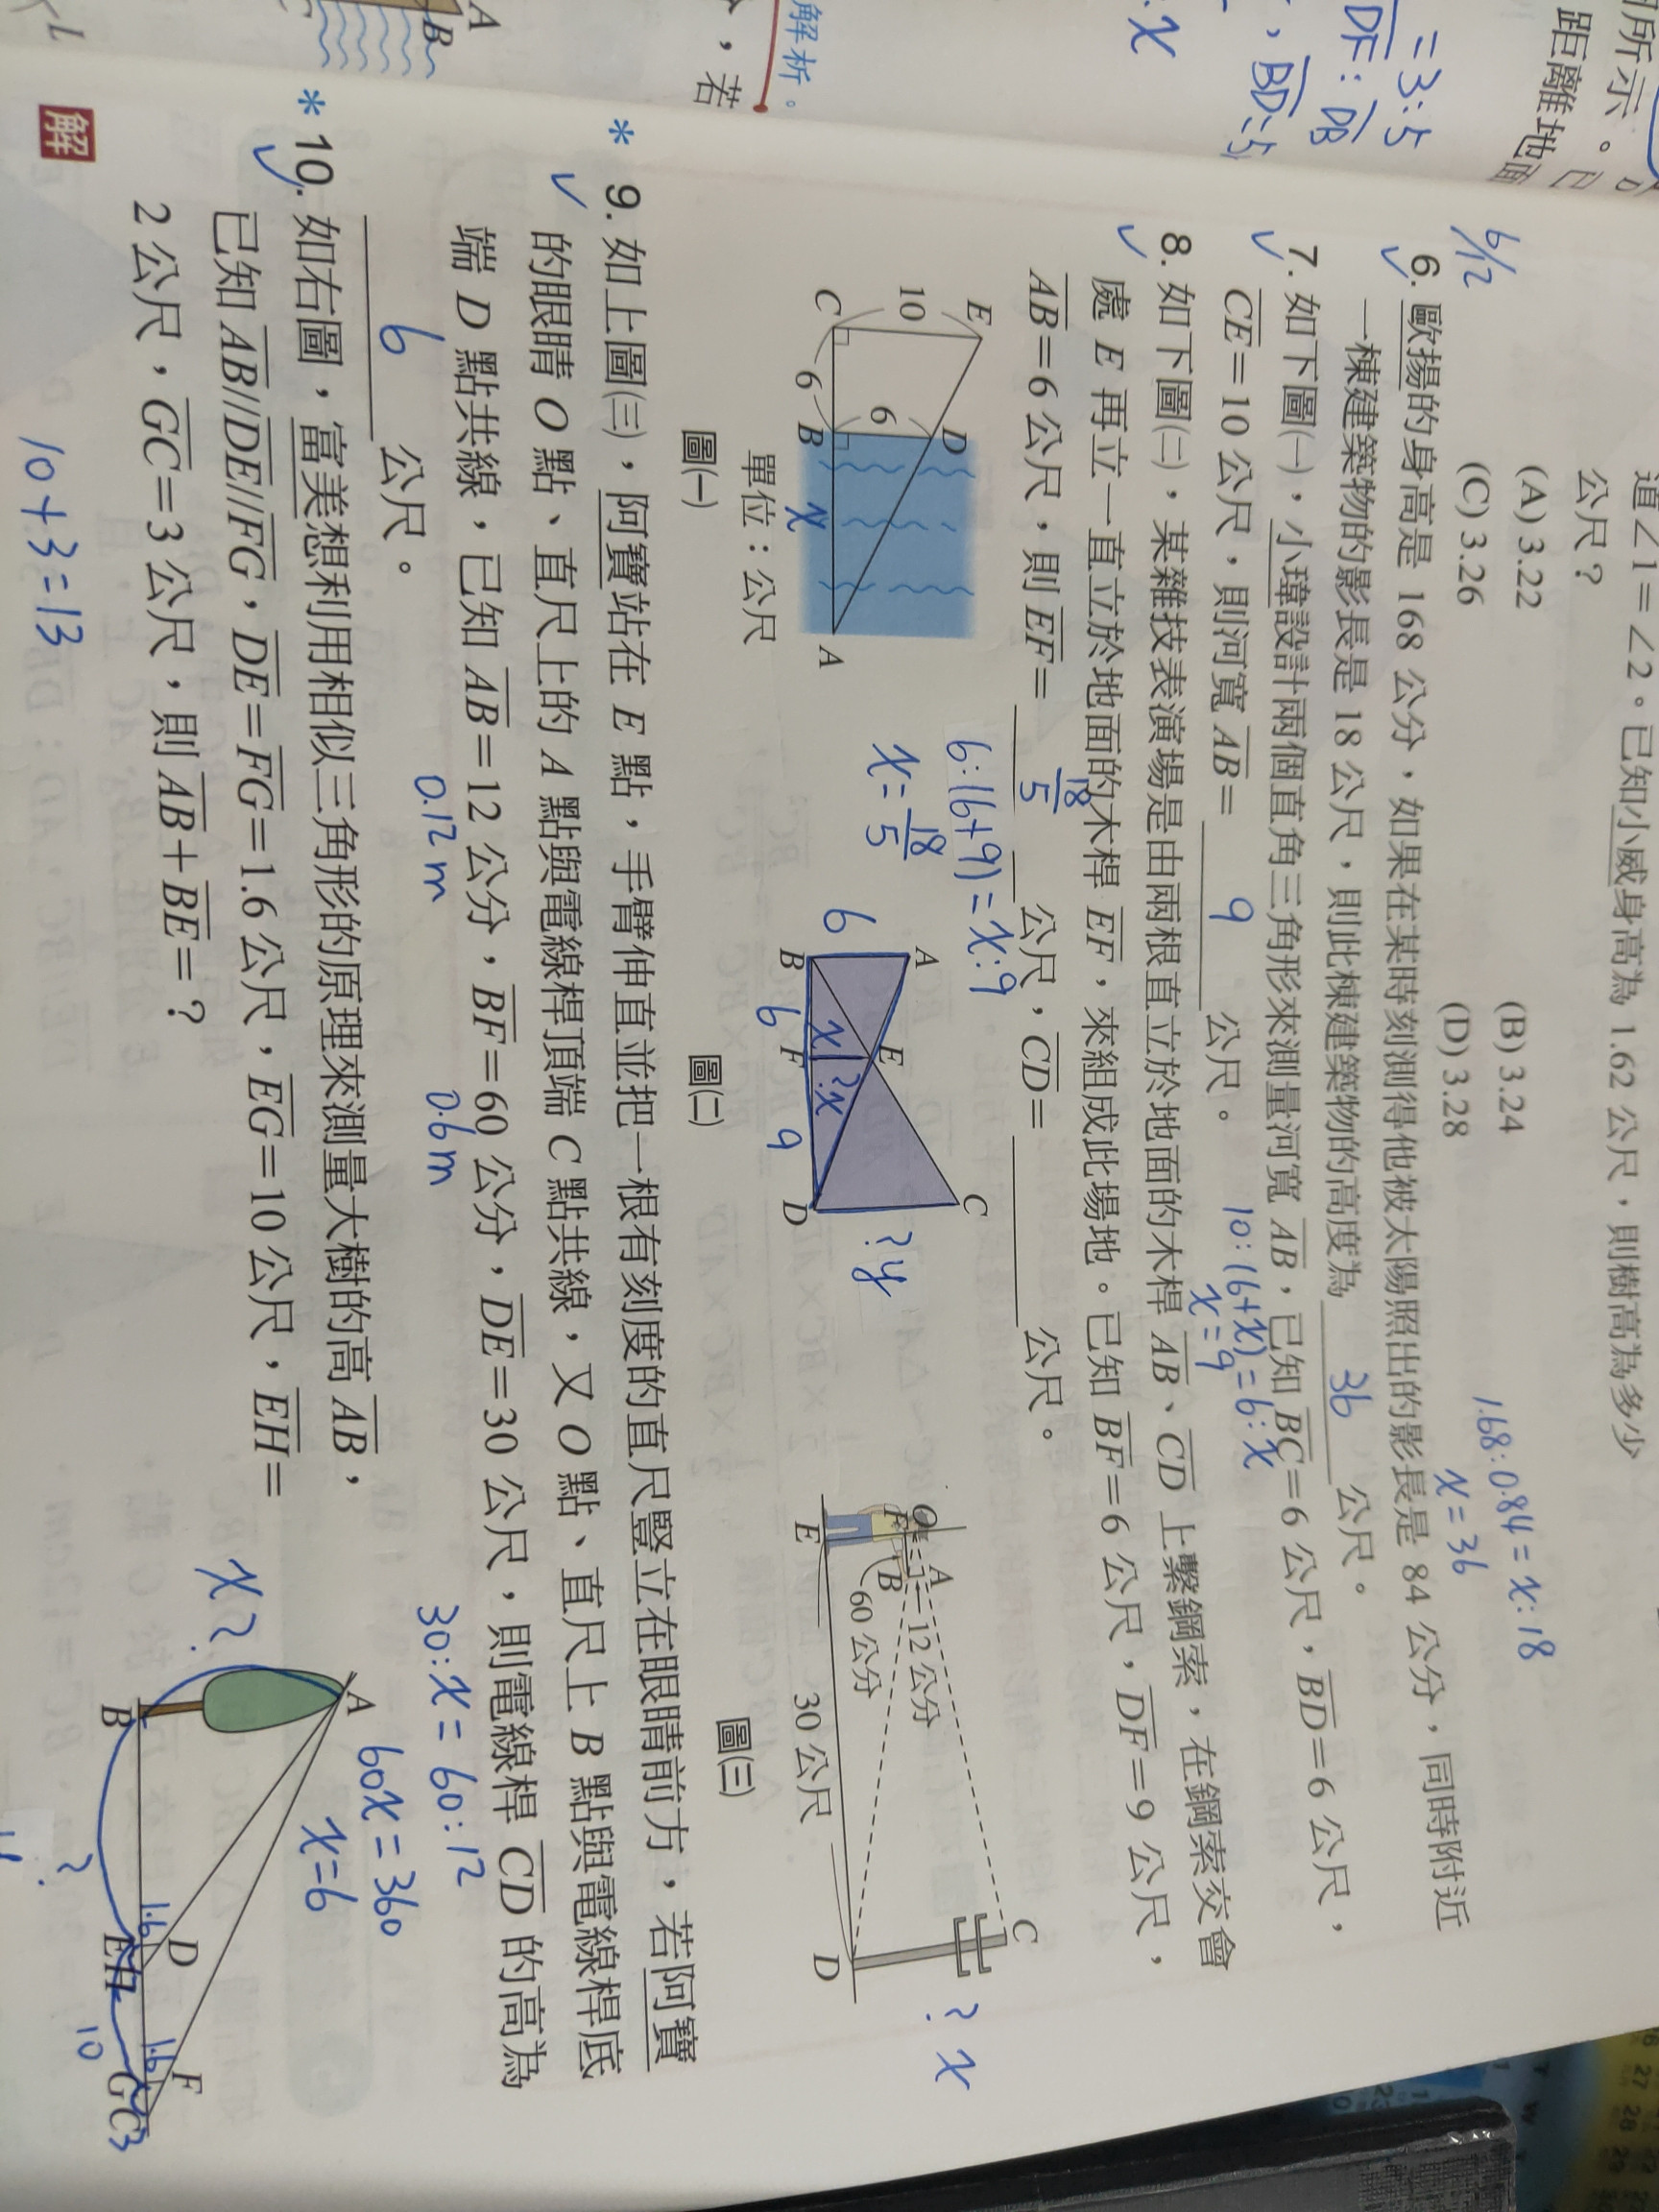 = 3 : 5
DF : DB
, BD = 5
x
解析。
,若
A
B
所示。已
距離地面
道∠1=∠2。已知小威身高為 1.62 公尺,則樹高為多少
公尺?
(A) 3.22 (B) 3.24
(C) 3.26 (D) 3.28
6/12
1.68 : 0.84 = x : 18
x = 36
6. 歐揚的身高是 168 公分,如果在某時刻測得他被太陽照出的影長是 84 公分,同時附近
一棟建築物的影長是 18 公尺,則此棟建築物的高度為 36 公尺。
7. 如下圖㈠,小瑋設計兩個直角三角形來測量河寬 AB,已知 BC=6 公尺,BD=6 公尺,
CE=10 公尺,則河寬 AB= 9 公尺。
10 : (6+x) = 6 : x
x = 9
8. 如下圖㈡,某雜技表演場是由兩根直立於地面的木桿 AB、CD 上繫鋼索,在鋼索交會
處 E 再立一直立於地面的木桿 EF,來組成此場地。已知 BF=6 公尺,DF=9 公尺,
AB=6 公尺,則 EF= 18/5 公尺,CD= 公尺。
6 : (6+9) = x : 9
x = 18/5
E
10
C
6
B
6
D
x
A
單位:公尺
圖㈠
A
6
B
6
F
9
D
E
x
?x
C
?y
圖㈡
O
A
F
B
12 公分
60 公分
E
30 公尺
D
C
? x
圖㈢
* 9. 如上圖㈢,阿寶站在 E 點,手臂伸直並把一根有刻度的直尺豎立在眼睛前方,若阿寶
的眼睛 O 點、直尺上的 A 點與電線桿頂端 C 點共線,又 O 點、直尺上 B 點與電線桿底
端 D 點共線,已知 AB=12 公分,BF=60 公分,DE=30 公尺,則電線桿 CD 的高為
0.12 m
0.6 m
6 公尺。
30 : x = 60 : 12
60x = 360
x = 6
* 10. 如右圖,富美想利用相似三角形的原理來測量大樹的高 AB,
已知 AB//DE//FG,DE=FG=1.6 公尺,EG=10 公尺,EH=
2 公尺,GC=3 公尺,則 AB+BE=?
x?
A
B
1.6
D
E
H
1.6
F
G
C
3
10
?
解
10 + 3 = 13